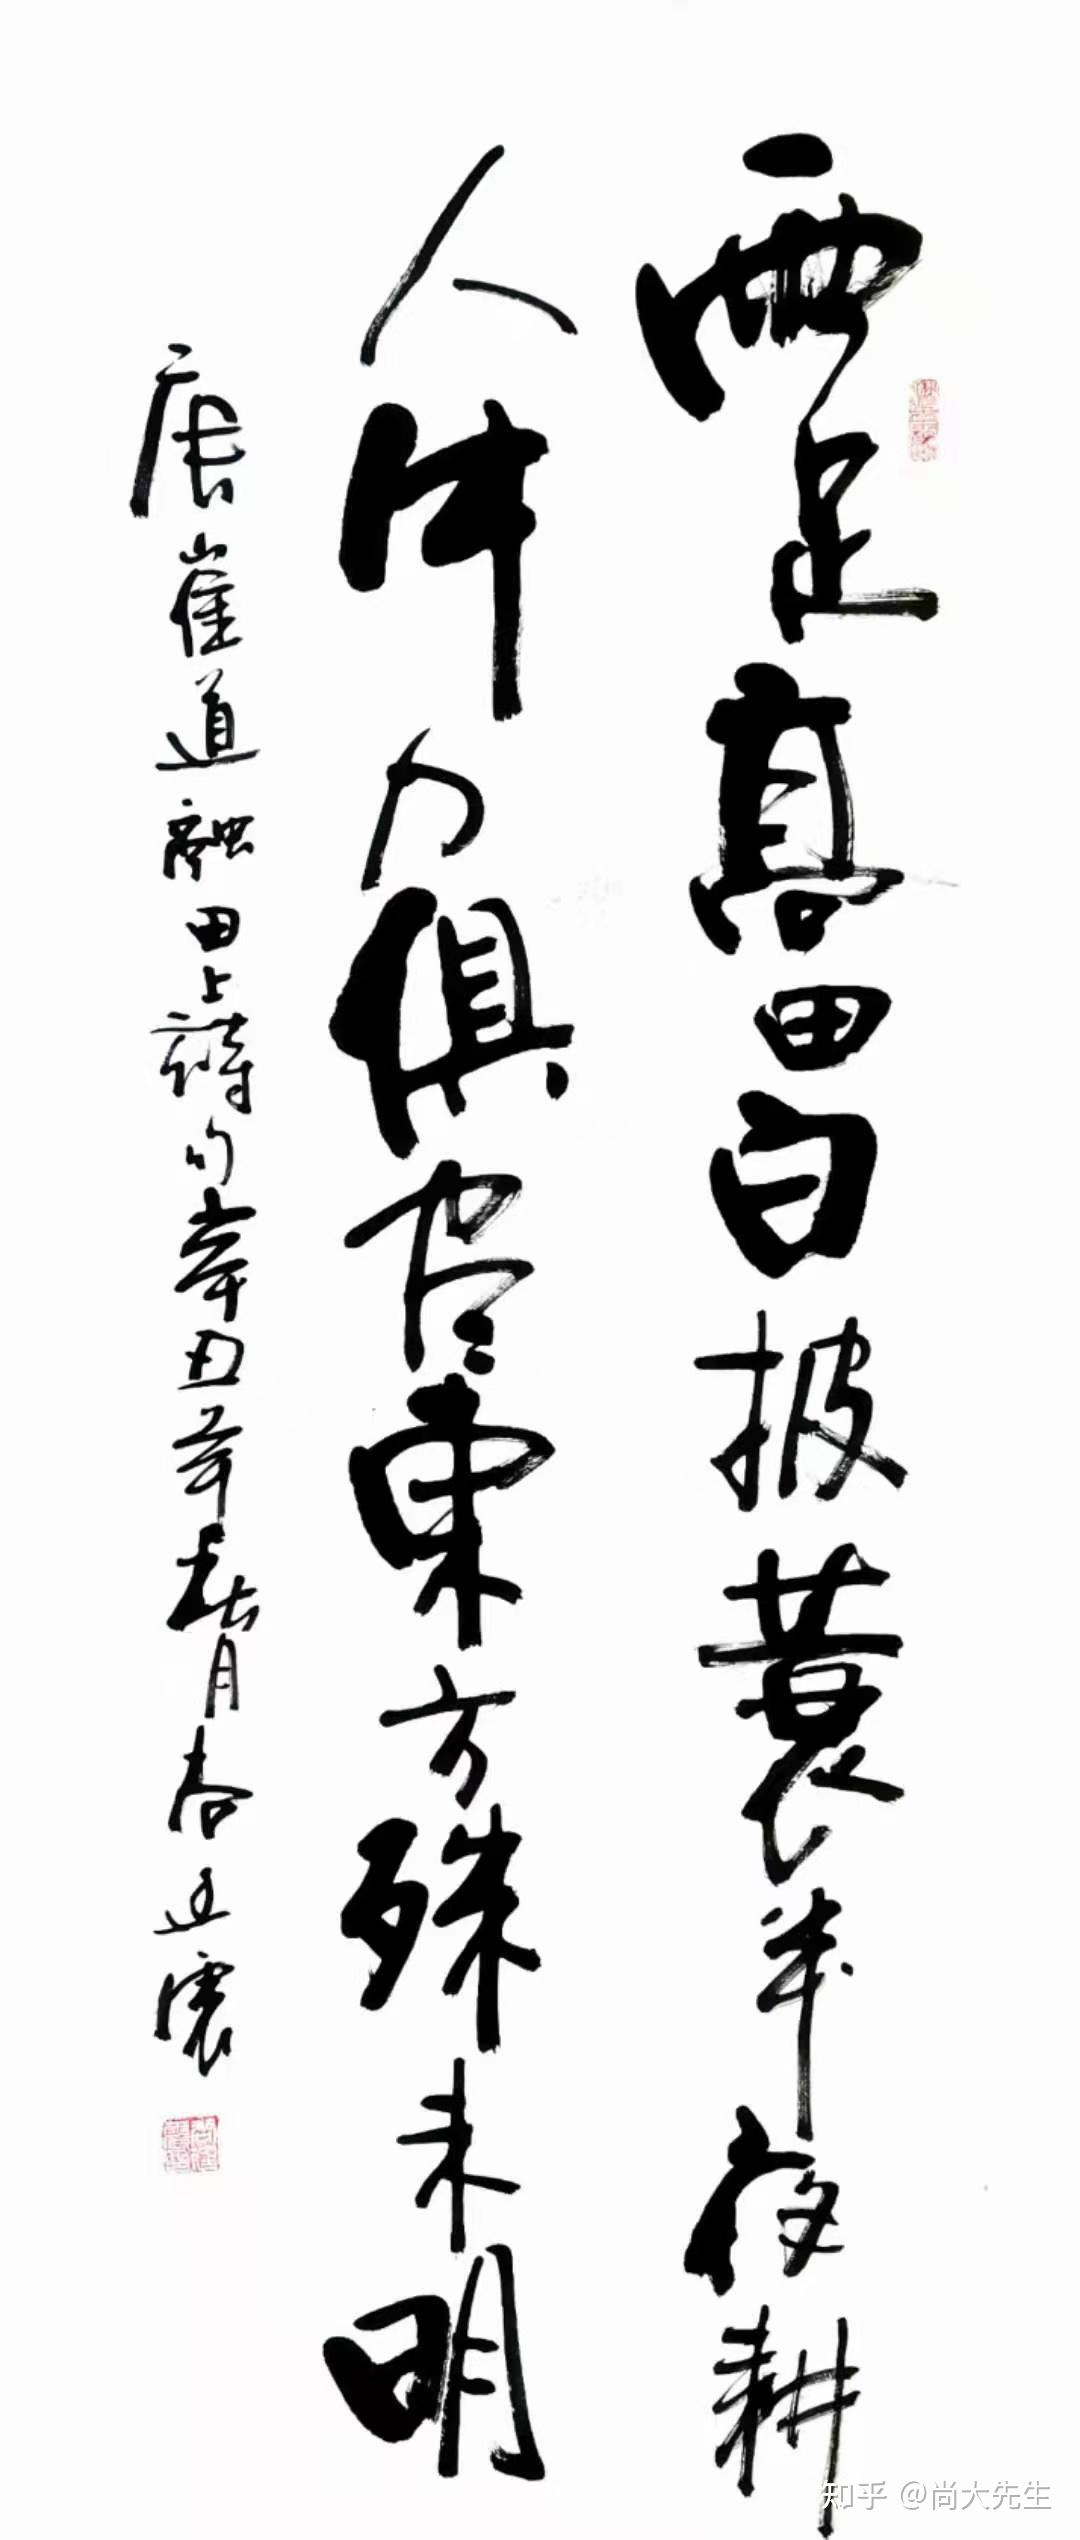 雨足高田白披蓑半夜耕
人牛力俱尽東方殊未明
唐崔道融田上詩句辛丑年春月
知乎 @尚大先生